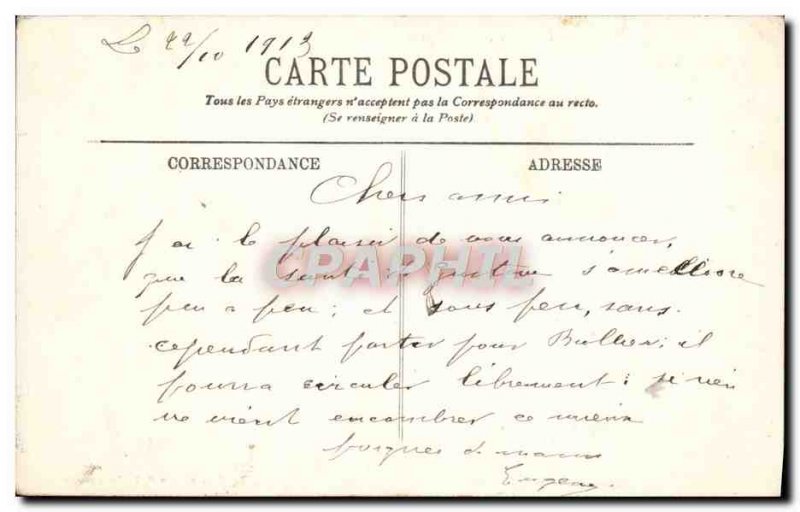 Le 22/10 1913
CARTE POSTALE
Tous les Pays étrangers n'acceptent pas la Correspondance au recto.
(Se renseigner à la Poste)
CORRESPONDANCE
ADRESSE
Chers amis
J'ai le plaisir de vous annoncer,
que la santé s'améliore
peu a peu; et sous peu, sans
cependant partir pour Bullier; il
pourra circuler librement; si rien
ne vient encombrer ce mieux
poignée de mains
Eugène
CPAPHIL